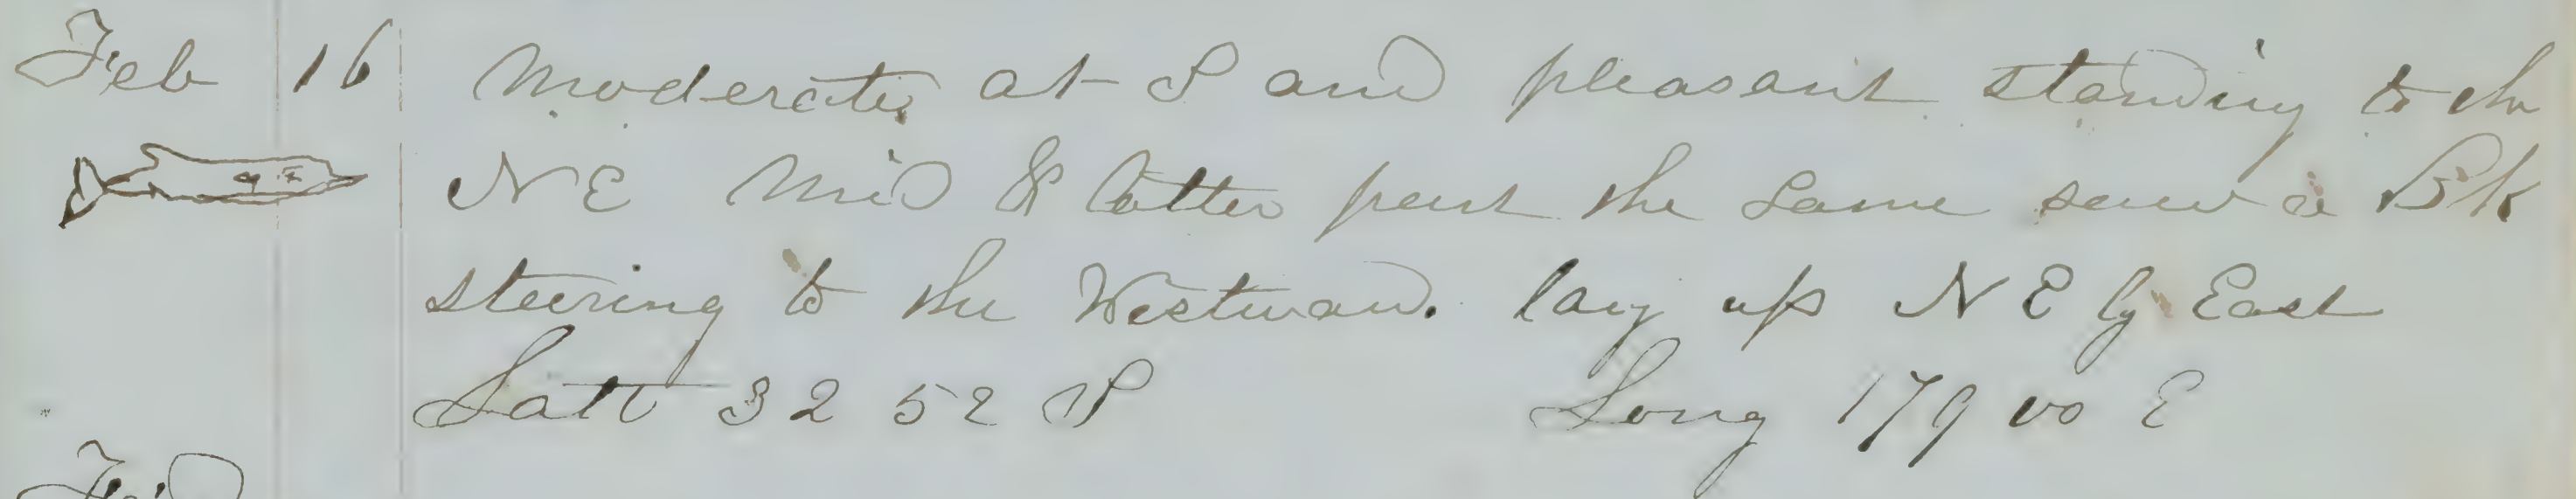 Feb 16 Moderate at S and pleasant standing to the
NE Mid & Latter part the same saw a Bk
steering to the Westward. lay up N E by East
Latt 32 52 S Long 179 00 E